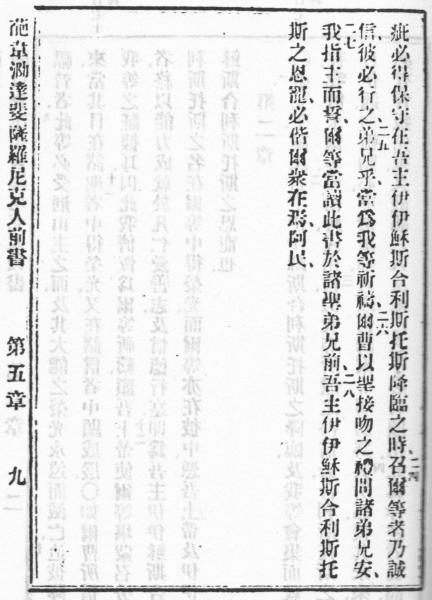 疵必得保守在吾主伊伊穌斯合利斯托斯降臨之時、二四召爾等者乃誠
信彼必行之、二五弟兄乎當爲我等祈禱、二六爾曹以聖接吻之禮問諸弟兄安、
二七我指主而誓爾等當讀此書於諸聖弟兄前、二八吾主伊伊穌斯合利斯托
斯之恩寵必偕爾衆在焉阿民、
葩韋泐達斐薩羅尼克人前書 第五章 九